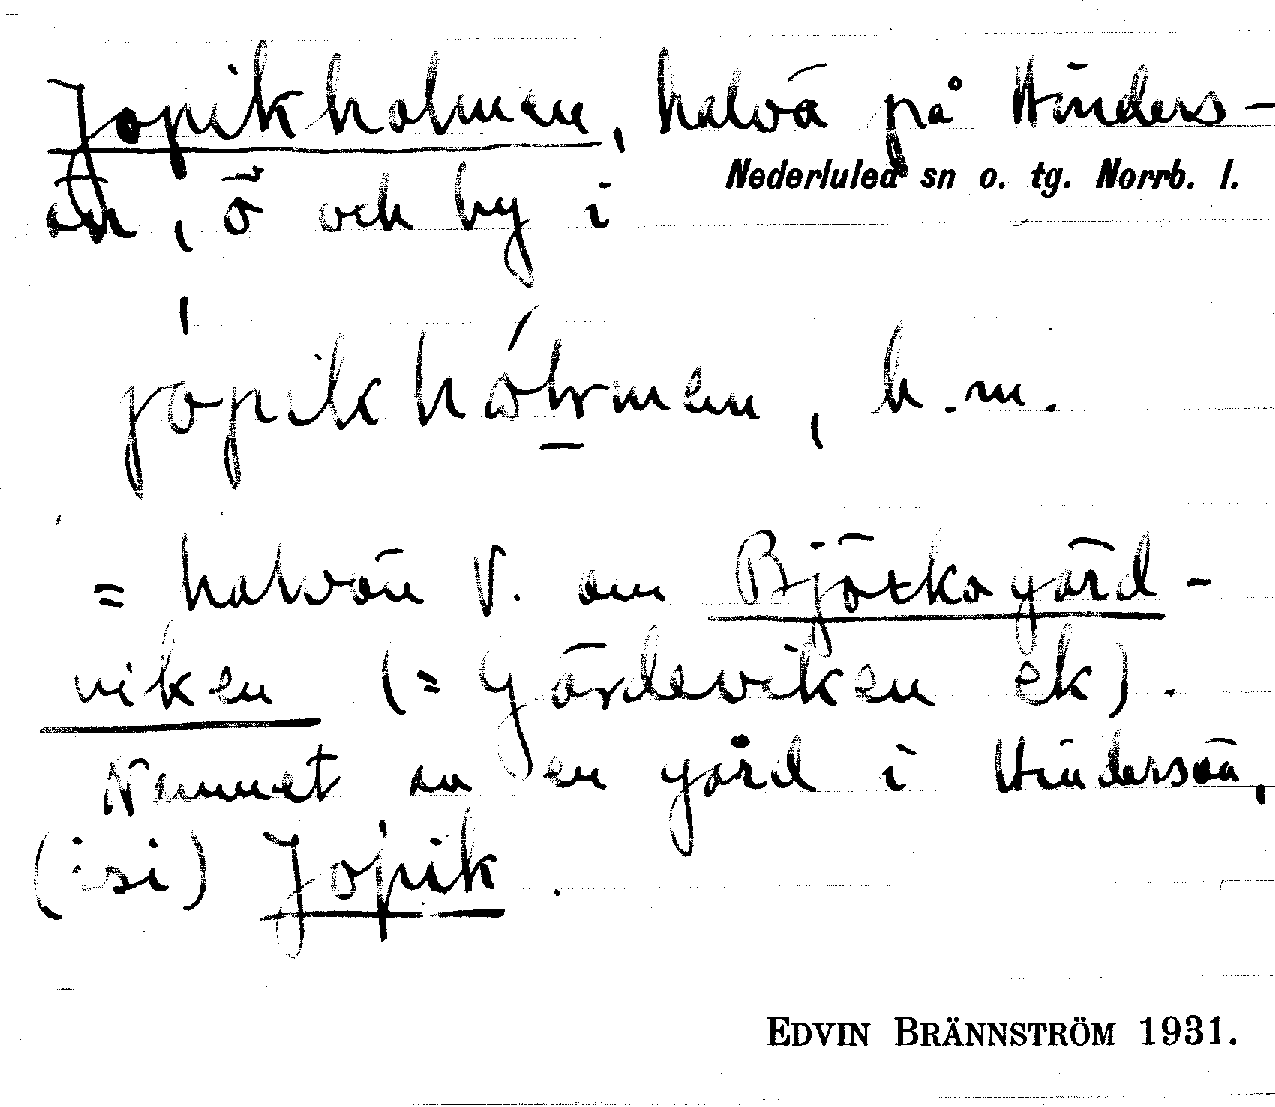 Jopikholmen, halvö på Hinders-
Nederluleå sn o. tg. Norrb. l.
ön, ö och by i
jópikhólmen, b.m.
= halvön V. om Björkogärd-
viken (= Gärdeviken ek).
Namnet av en gård i Hindersön,
(isi) Jopik.
EDVIN BRÄNNSTRÖM 1931.